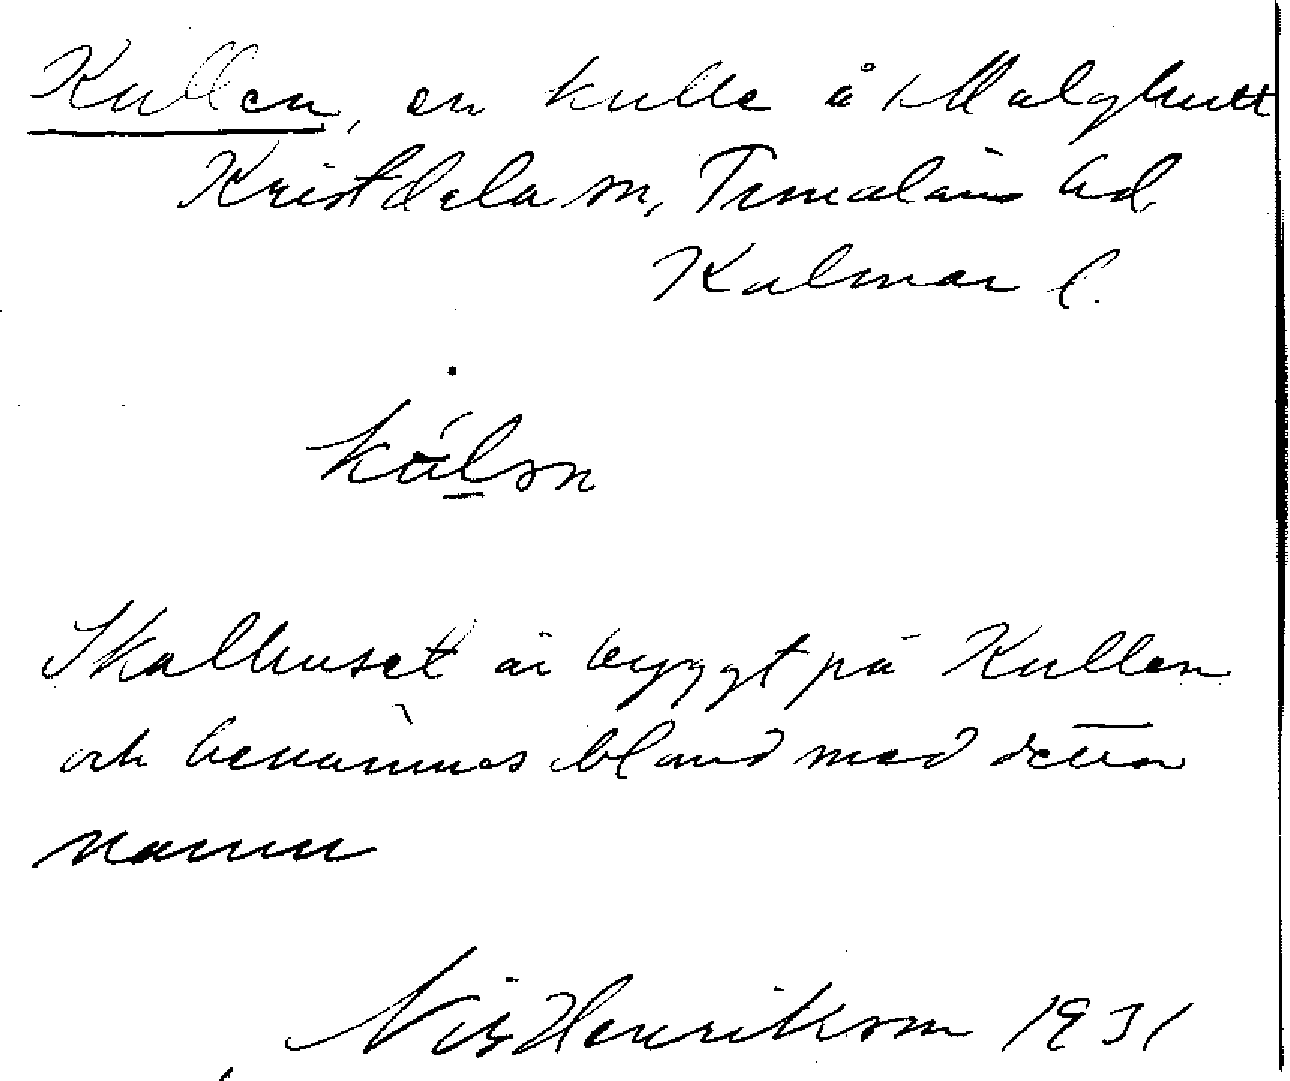 Kullen, en kulle å Malghult
Kristdala sn, Tunaläns hd.
Kalmar l.
Skolhuset är byggt på Kullen
och benämnes bland med detta
namn
Nils Henrikson 1931